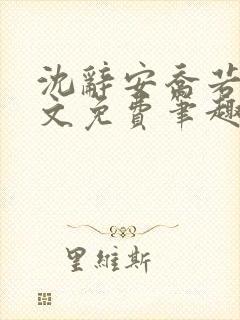 沈辭安喬若
文免費筆趣
里維斯